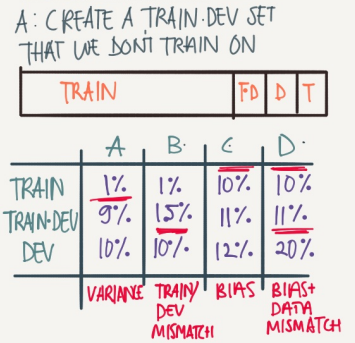 A: CREATE A TRAIN-DEV SET
THAT WE DON'T TRAIN ON
TRAIN T-D D T
A B C D
TRAIN 1% 1% 10% 10%
TRAIN-DEV 9% 15% 11% 11%
DEV 10% 10% 12% 20%
VARIANCE TRAIN/ BIAS BIAS+
DEV DATA
MISMATCH MISMATCH